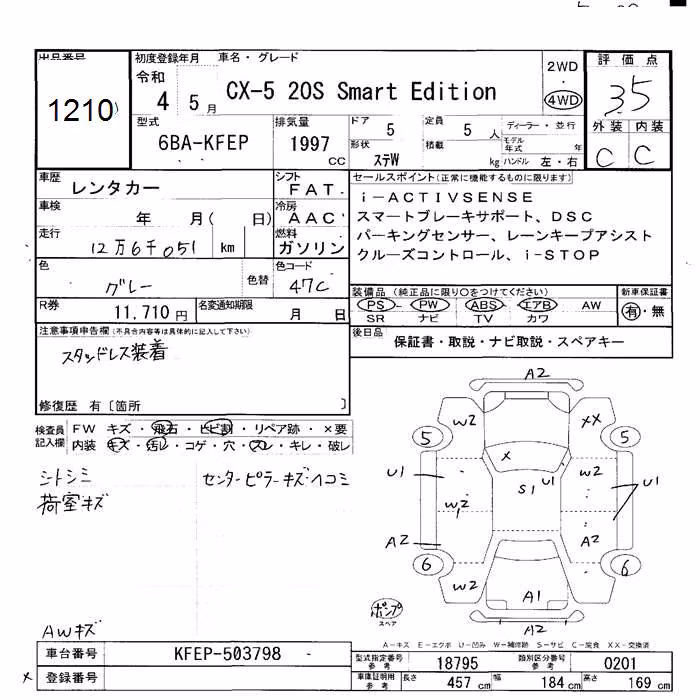 出品番号
1210
初度登録年月
令和
4 5 月
車名・グレード
CX-5 20S Smart Edition
2WD
・
4WD
評価点
3.5
外装 内装
C C
型式
6BA-KFEP
排気量
1997
CC
ドア
5
定員
5 人
ディーラー・並行
形状
ステW
積載
kg
モデル年式
年
ハンドル 左・右
車歴
レンタカー
シフト
FAT
車検
年 月( 日)
冷房
AAC
走行
12万6千051 km
燃料
ガソリン
色
グレー
色替
色コード
47C
R券
11,710 円
名変通知期限
月 日
セールスポイント(正常に機能するものに限ります)
i-ACTIVSENSE
スマートブレーキサポート、DSC
パーキングセンサー、レーンキープアシスト
クルーズコントロール、i-STOP
装備品 (純正品に限り○をつけてください)
PS PW ABS エアB AW
SR ナビ TV カワ
新車保証書
有・無
後日品
保証書・取説・ナビ取説・スペアキー
注意事項申告欄(不具合内容等は具体的に記入して下さい)
スタッドレス装着
修復歴 有 〔箇所 〕
検査員記入欄
FW キズ・飛石・ヒビ割・リペア跡・×要
内装 キズ・汚レ・コゲ・穴・スレ・キレ・破レ
シートシミ
荷室キズ
センターピラーキズ・ヘコミ
AWキズ
A2
W2
XX
5
5
X
U1
S1
U1
W2
U1
W2
A2
A2
6
6
W2
A1
A2
ポンプ
スペア
A-キズ E-エクボ U-凹み W-補修跡 S-サビ C-腐食 XX-交換済
車台番号
KFEP-503798
X
登録番号
型式指定番号
参考
18795
類別区分番号
参考
0201
車庫証明用
参考
長さ 457 cm
幅 184 cm
高さ 169 cm